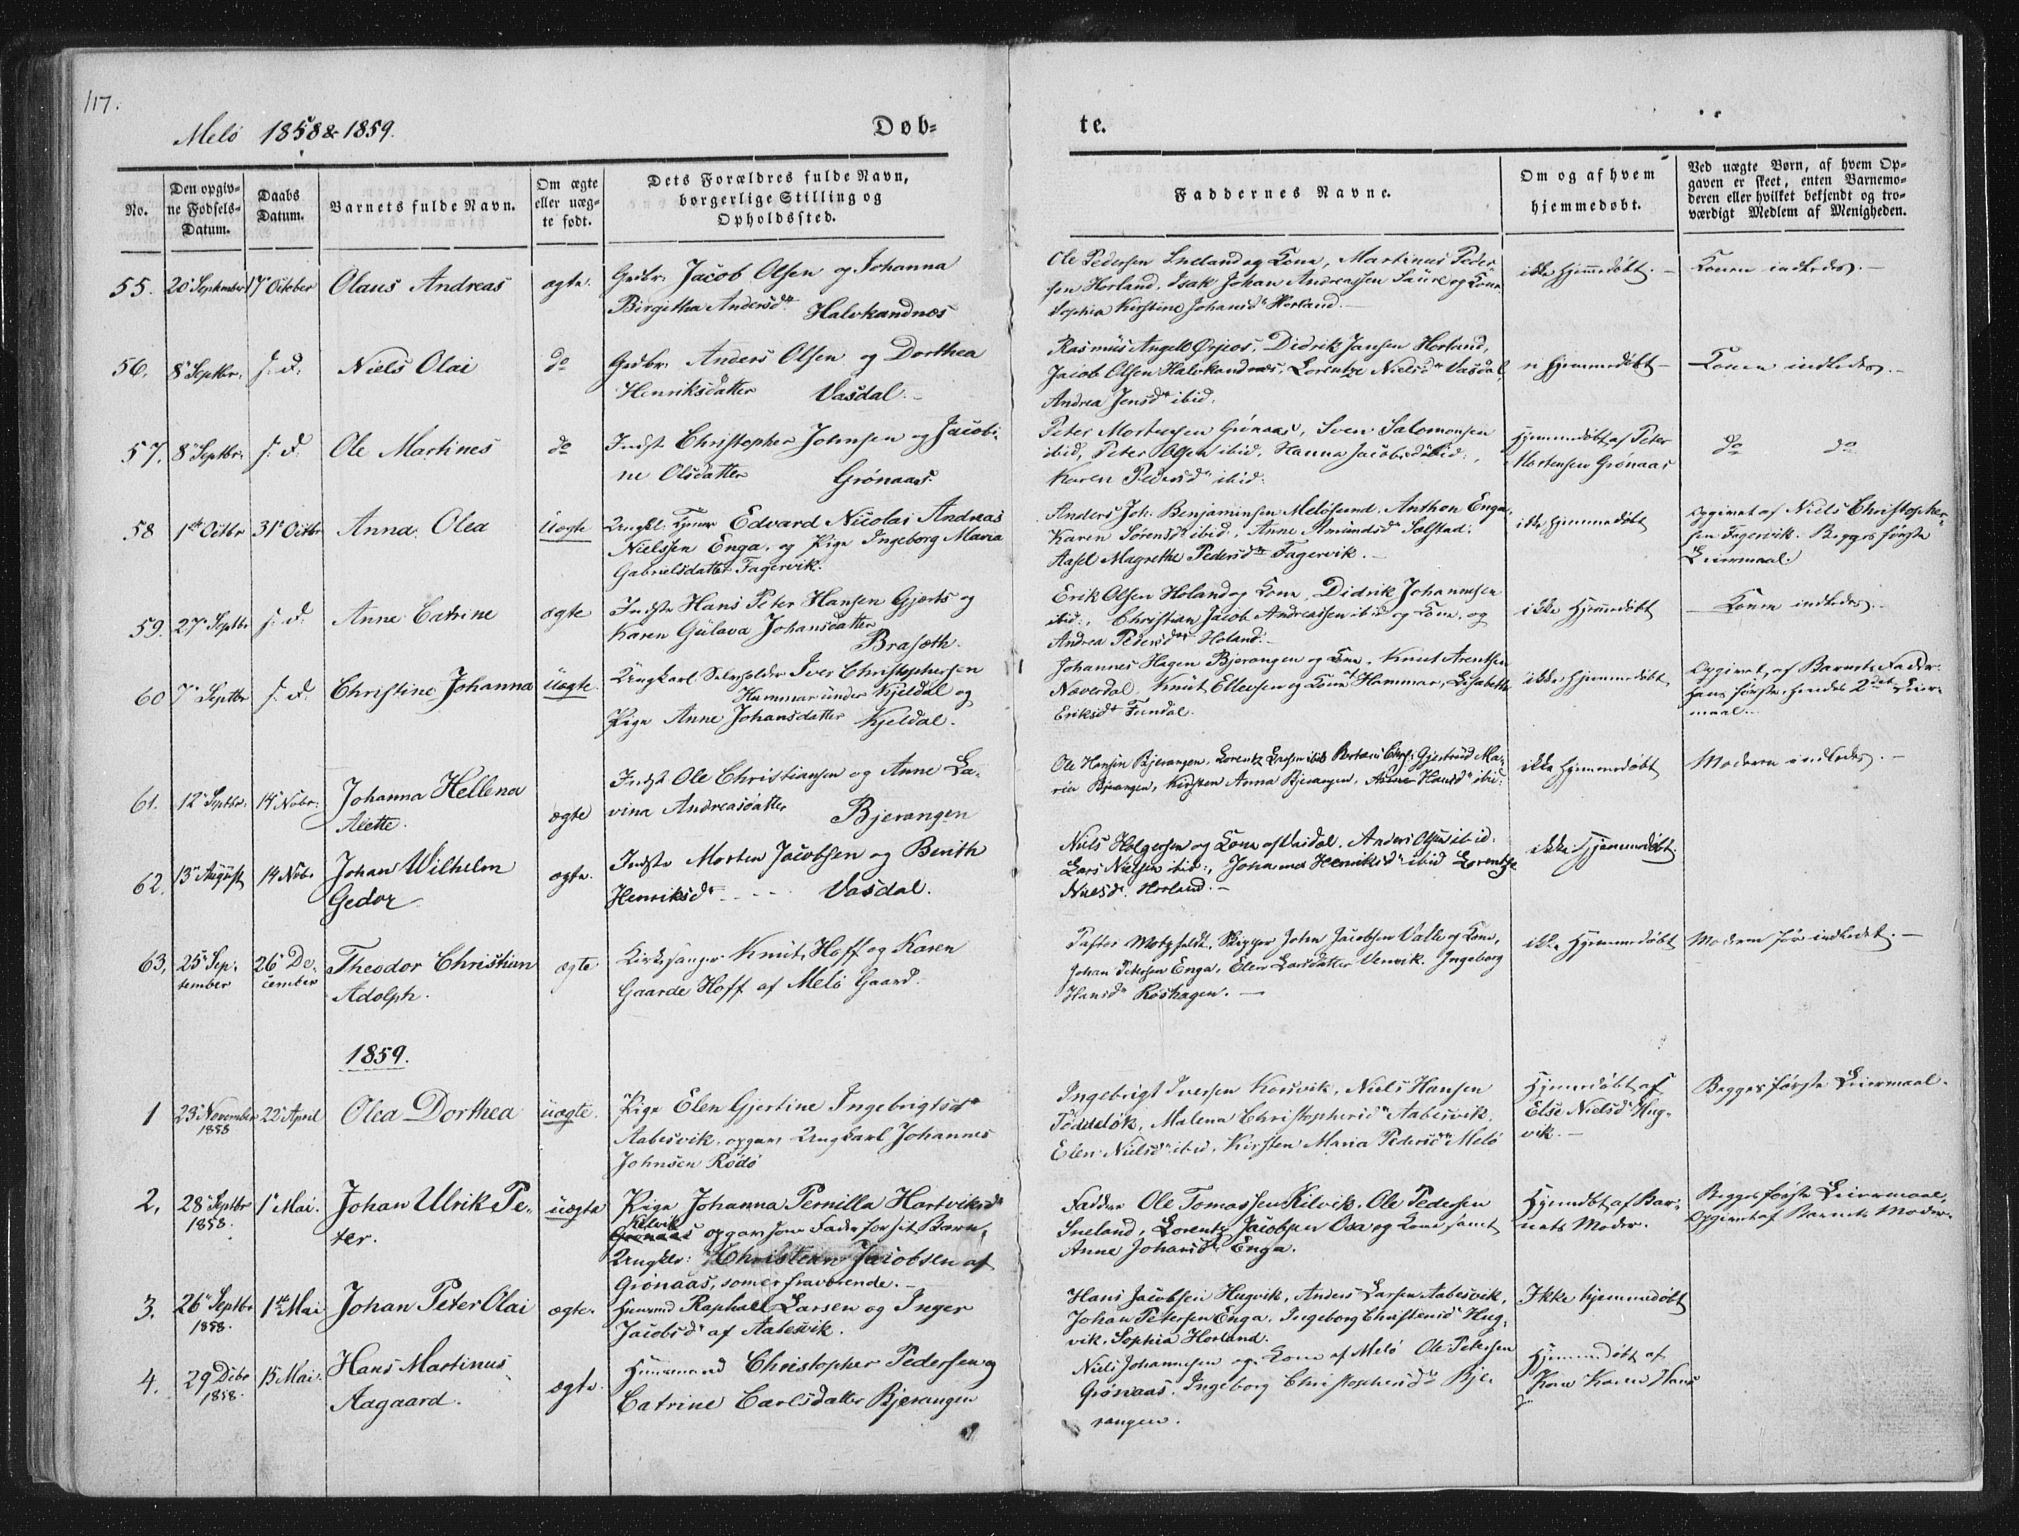 117.
Melö 1858 & 1859.
Døb=
te.
No.
Den opgiv=
ne Fødsels=
Datum.
Daabs
Datum.
Barnets fulde Navn.
Om ægte
eller uæg=
te født.
Dets Forældres fulde Navn,
borgerlige Stilling og
Opholdssted.
Faddernes Navne.
Om og af hvem
hjemmedøbt.
Ved uægte Børn, af hvem Op=
gaven er skeet, enten Barnemo=
deren eller hvilket bekjendt og tro=
værdigt Medlem af Menigheden.
55. 20 September 17 October Olaus Andreas ægte. Gdbr. Jacob Olsen og Johanna
Birgitha Andersdr Halvkandnæs
Ole Pedersen Sneland og Kone, Martinus Peder
sen Horland, Isak Johan Andreassen Saure og Kone
Sophia Kirstine Johansdr Horland.
ikke hjemmedøbt. Konen indledes.
56. 8 Septbr. s. d. Niels Olai do Gdbr. Anders Olsen og Dorthea
Henriksdatter Vasdal.
Rasmus Angell Ørjeos, Didrik Jansen Horland,
Jacob Olsen Halvkandnæs, Lorentze Nielsdr Vasdal,
Andrea Jensdr ibid.
ei hjemmedøbt Konen indledes.
57. 8 Septbr. s. d. Ole Martines do Indst. Christopher Johnsen og Jacobi-
ne Olsdatter Grönaas.
Peter Mortensen Grönaas, Sven Salomonsen
ibid, Peter Olsen ibid, Hanna Jacobsdr ibid.,
Karen Pedersdr ibid.
Hjemmedøbt af Peter
Mortensen Grönaas
do do
58 1ste Octbr 31 Octbr Anna Olea uægte Ungkl. Edvard Nicolai Andreas
Nielssen Enga, og Pige Ingeborg Maria
Gabrielsdatter Fagervik.
Anders Joh. Benjaminsen Melösund, Anthon Enga,
Karen Sörensdr ibid, Anne Amundsdr Solstad,
Axel Magrethe Pedersdr Fagervik.
ikke hjemmedøbt
Opgivet af Niels Christopher-
sen Fagervik. Begges første
Leiermaal.
59. 27 Septbr s. d. Anne Catrine ægte Indst Hans Peter Hansen Gjerts og
Karen Gulava Johansdatter
Brasæth.
Erik Olsen Holand og Kone, Didrik Johannesen
ibid., Christian Jacob Andreassen ibid og Kone, og
Andrea Pedersdr Holand.
ikke hjemmedøbt Konen indledes.
60 7 Septbr s. d. Christine Johanna uægte Ungkarl Selvholder Iver Christophersen
Hammar under Kjeldal og
Pige Anne Johansdatter Kjeldal.
Johannes Hagen Bjerangen og Kone, Knut Arentsen
Naverdal, Knut Ellevsen og Kone Hammar, Lisabeth
Eriksdr Fundal.
ikke hjemmedøbt
Opgivet af Barnets Fader.
Hans første, hendes 2det Leier-
maal.
61. 12 Septbr. 14 Novbr. Johanna Hellena
Alette.
ægte
Indst Ole Christiansen og Anne La-
vina Andreasdatter Bjerangen
Ole Hansen Bjerangen, Lorentz Larsen ibid Gjertrud Ma-
ria Bjerangen, Kirsten Anna Bjerangen, Anne Hansdr ibid.
ikke hjemmedøbt Moderen indledes.
62. 13 August 14 Nobr Johan Wilhelm
Gedor
ægte.
Indste Morten Jacobsen og Berith
Henriksdr Vasdal.
Niels Holgersen og Kone af Vasdal, Anders Olsen ibid.
Lars Nielsen ibid., Johanna Henriksdr ibid Lorentze
Nielsdr Horland.
ikke hjemmedøbt
63. 25 Sep-
tember
26 De-
cember
Theodor Christian
Adolph.
ægte
Kirkesanger Knut Hoff og Karen
Gaarde Hoff af Melö Gaard.
Pastor Motzfeldt, Skipper John Jacobsen Valle og Kone,
Johan Petersen Enga, Elen Larsdatter Venvik, Ingeborg
Hansdr Röshagen.
ikke hjemmedøbt Moderen før indledet.
1859.
1 23 November
1858
22 April Olea Dorthea uægte.
Pige Elen Gjertine Ingebrigtsdr
Aabesvik, opgav Ungkarl Johannes
Johnsen Rödö
Ingebrigt Iversen Korsvik, Niels Hansen
Töddelok, Malena Christophersdr Aabesvik,
Elen Nielsdr ibid, Kirsten Maria Pedersdr Melö
Hjemmedøbt af
Else Nielsdr Hug-
vik.
Begges første Leiermaal.
2. 28 Septbr
1858.
1 Mai. Johan Ulrik Pe-
ter.
uægte
Pige Johanna Pernilla Hartviksdr
Kilvik
Grönaas opgav som Fader for sit Barn,
Ungkar: Christian Jacobsen af
Grönaas, som er fraværende.
Faddere Ole Tomassen Kilvik, Ole Pedersen
Sneland, Lorentz Jacobsen Osa og Kone samt
Anne Johansdr Enga.
Hjemdøbt af Bar-
nets Moder.
Begges første Leiermaal,
Opgivet af Barnets Moder.
3. 26 Septbr
1858.
1ste Mai Johan Peter Olai ægte.
Huusmd Raphael Larsen og Inger
Jacobsdr af Aabesvik.
Hans Jacobsen Hugvik, Anders Larsen Aabesvik,
Johan Petersen Enga, Ingeborg Christensdr Hug-
vik, Sophia Horland.
Ikke hjemmedøbt
4. 29 Debr
1858.
15 Mai. Hans Martinus
Aagaard.
ægte.
Huusmand Christopher Pedersen og
Catrine Carlsdatter Bjerangen
Niels Johannesen og Kone af Melö Ole Petersen
Grönaas, Ingeborg Christophersdr Bje-
rangen.
Hjemmedøbt af
Kone Karen Hans